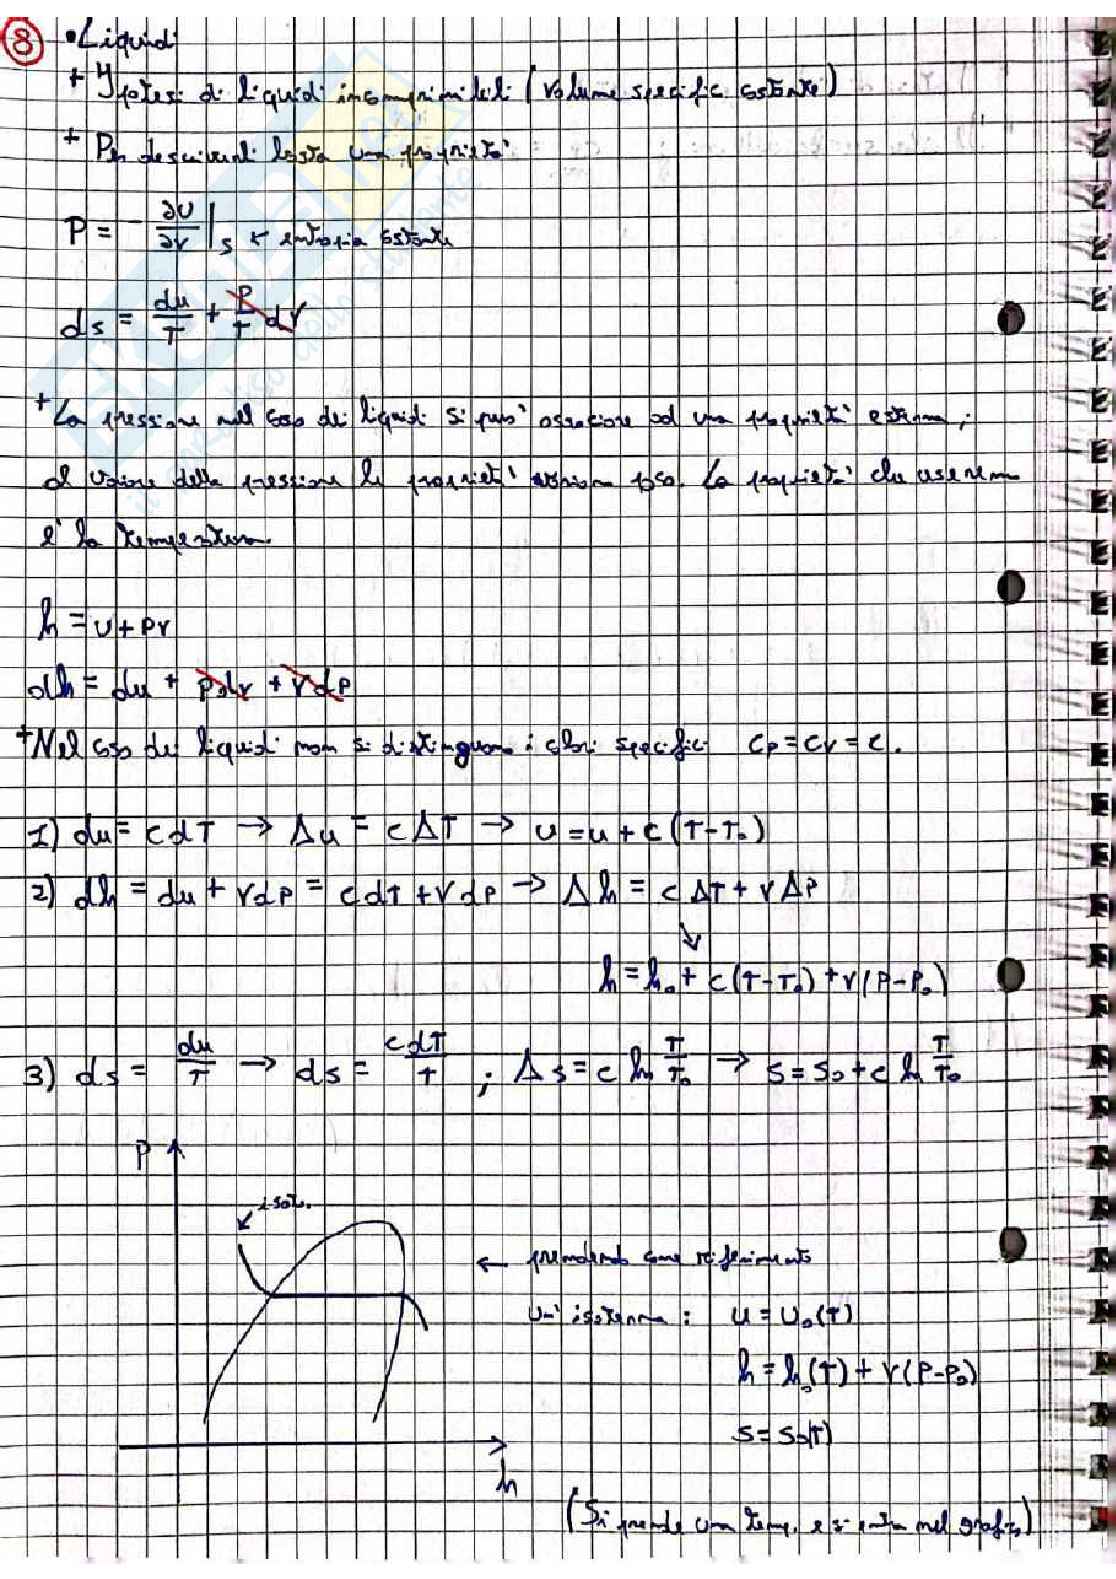 8 • Liquidi
+ Ipotesi di liquidi incomprimibili (volume specifico costante)
+ Per descriverli basta una proprietà:
P = - ∂U/∂v |s ← entropia costante
ds = du/T + P/T dv
+ La pressione nel caso dei liquidi si può associare ad una proprietà esterna;
al variare della pressione le proprietà variano poco. La proprietà che useremo
è la temperatura
h = u + Pv
dh = du + Pdv + vdP
+ Nel caso dei liquidi non si distinguono i calori specifici cP = cv = c.
1) du = c dT → Δu = cΔT → u = u + c (T-T₀)
2) dh = du + vdP = c dT + v dP → Δh = c ΔT + v ΔP
↓
h = h₀ + c(T-T₀) + v(P-P₀)
3) ds = du/T → ds = c dT/T ; Δs = c ln T/T₀ → s = s₀ + c ln T/T₀
P
isot.
← prendendo come riferimento
un'isoterma : u = u₀(T)
h = h₀(T) + v(P-P₀)
s = s₀(T)
h
(Si prende una temp. e si entra nel grafico)